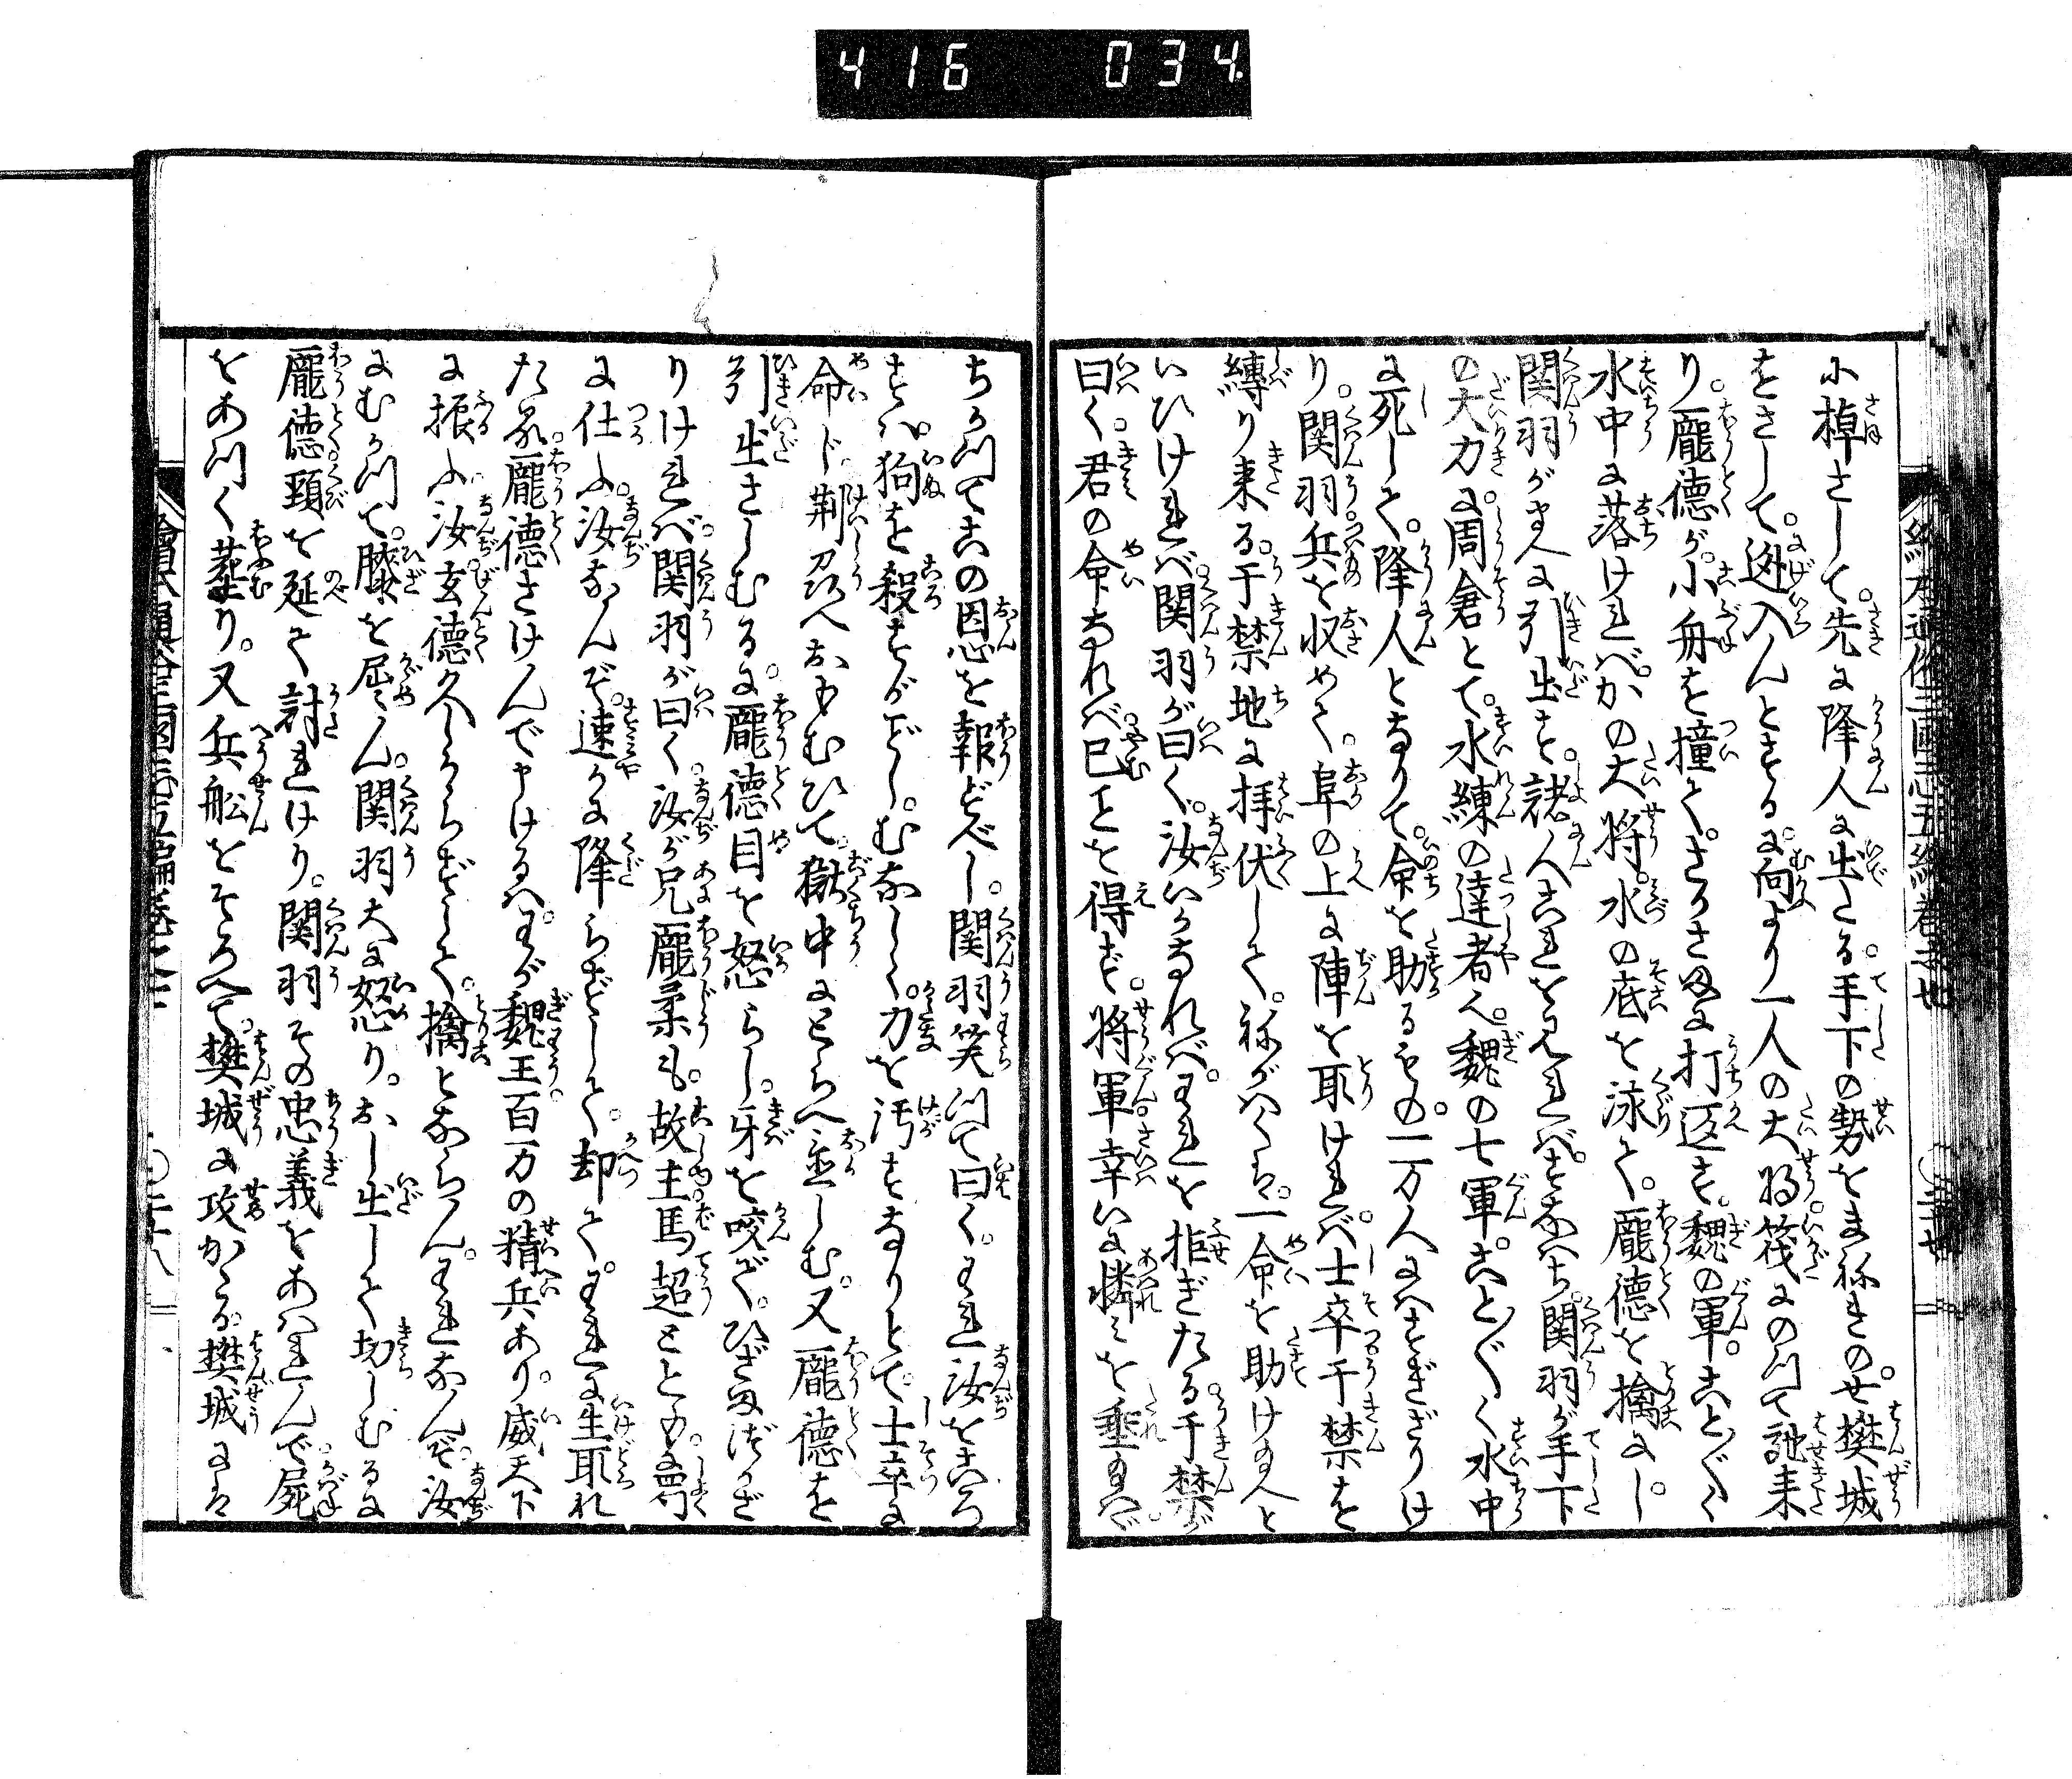 416 034.
小棹さして。先に降人に出たる。手下の勢をまねきのせ。樊城
をさして。逃入んとする に。向より一人の大将。筏にのつて馳来
り。龐徳が。小舟を撞て。さかさまに打返す。魏の軍。こと〴〵く
水中に落ければ。かの大将。水の底を泳て。龐徳を擒にし。
関羽がまへに引出す。諸人これを見れば。すなはち。関羽が手下
の大力に。周倉とて。水練の達者也。魏の七軍。こと〴〵く水中
に死して。降人となりて。命を助るもの。一万人にはすぎざりけ
り。関羽兵を収めて。阜の上に陣を取ければ。士卒于禁を
縛り来る。于禁地に拝伏して。ねがはくは。一命を助け給へと
いひければ。関羽が曰く。汝いかなれば。われを拒ぎたる。于禁が
曰く。君の命なれば。已ことを得ず。将軍幸いに憐みを垂給はゞ。
ちかつてこの恩を報ずべし。関羽笑つて曰く。われ汝をころ
すは。狗を殺すがごとし。むなしく。刀を汚すなりとて。士卒に
命じ。荊州へおもむひて。獄中にとらへ並しむ。又龐徳を
引出さしむるに。龐徳目を怒らし。牙を咬で。ひざまづかざ
りければ。関羽が曰く。汝が兄龐柔も。故主馬超とともに蜀
に仕ふ。汝なんぞ。速かに降らずして。却て。われに生取れ
たる。龐徳さけんで申けるは。わが魏王。百万の精兵あり。威天下
に振ふ。汝玄徳久しからずして。擒とならん。われなんぞ。汝
にむかつて。膝を屈ん。関羽大に怒り。おし出して切しむるに
龐徳頸を延て討れけり。関羽その忠義をあはれんで。屍
をあつく葬り。又兵舩をそろへて。樊城に攻かゝる。樊城には